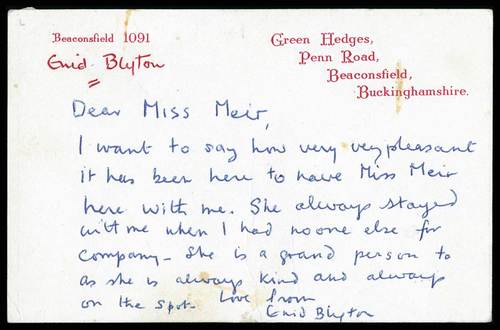 Beaconsfield 1091
Enid Blyton
Green Hedges,
Penn Road,
Beaconsfield,
Buckinghamshire.
Dear Miss Meir,
I want to say how very very pleasant
it has been here to have Miss Meir
here with me. She always stayed
with me when I had no one else for
company - She is a grand person to
as she is always kind and always
on the spot. Love from
Enid Blyton